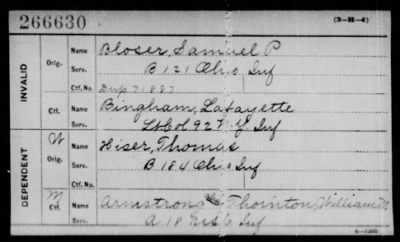 266630
(3-H-4)
INVALID
Orig.
Name Bloser, Samuel P
Serv. B 121 Ohio Inf
Ctf. No. Dup 71887
Ctf.
Name Bingham, Lafayette
Serv. Lt Col 92 Inf
DEPENDENT
W
Orig.
Name Hiser, Thomas
Serv. B 184 Ohio Inf
Ctf. No.
M
Ctf.
Name Armstrong Thornton, William
Serv. A 18 Inf